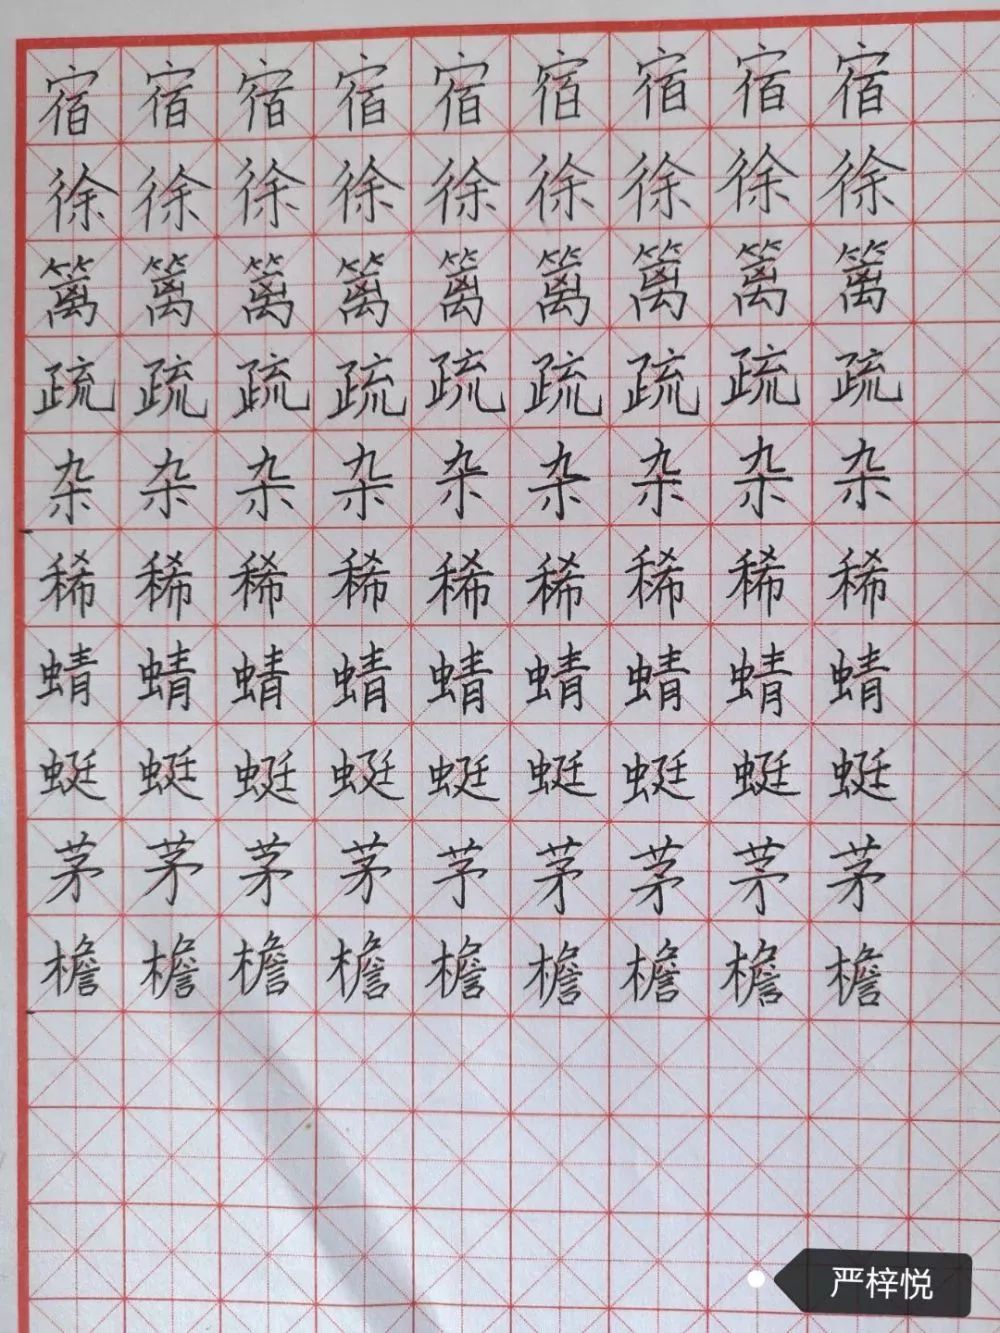 宿宿宿宿宿宿宿宿宿
徐徐徐徐徐徐徐徐徐
篱篱篱篱篱篱篱篱篱
疏疏疏疏疏疏疏疏疏
杂杂杂杂杂杂杂杂杂
稀稀稀稀稀稀稀稀稀
蜻蜻蜻蜻蜻蜻蜻蜻蜻
蜓蜓蜓蜓蜓蜓蜓蜓蜓
茅茅茅茅芧茅茅茅茅
檐檐檐檐檐檐檐檐檐
严梓悦